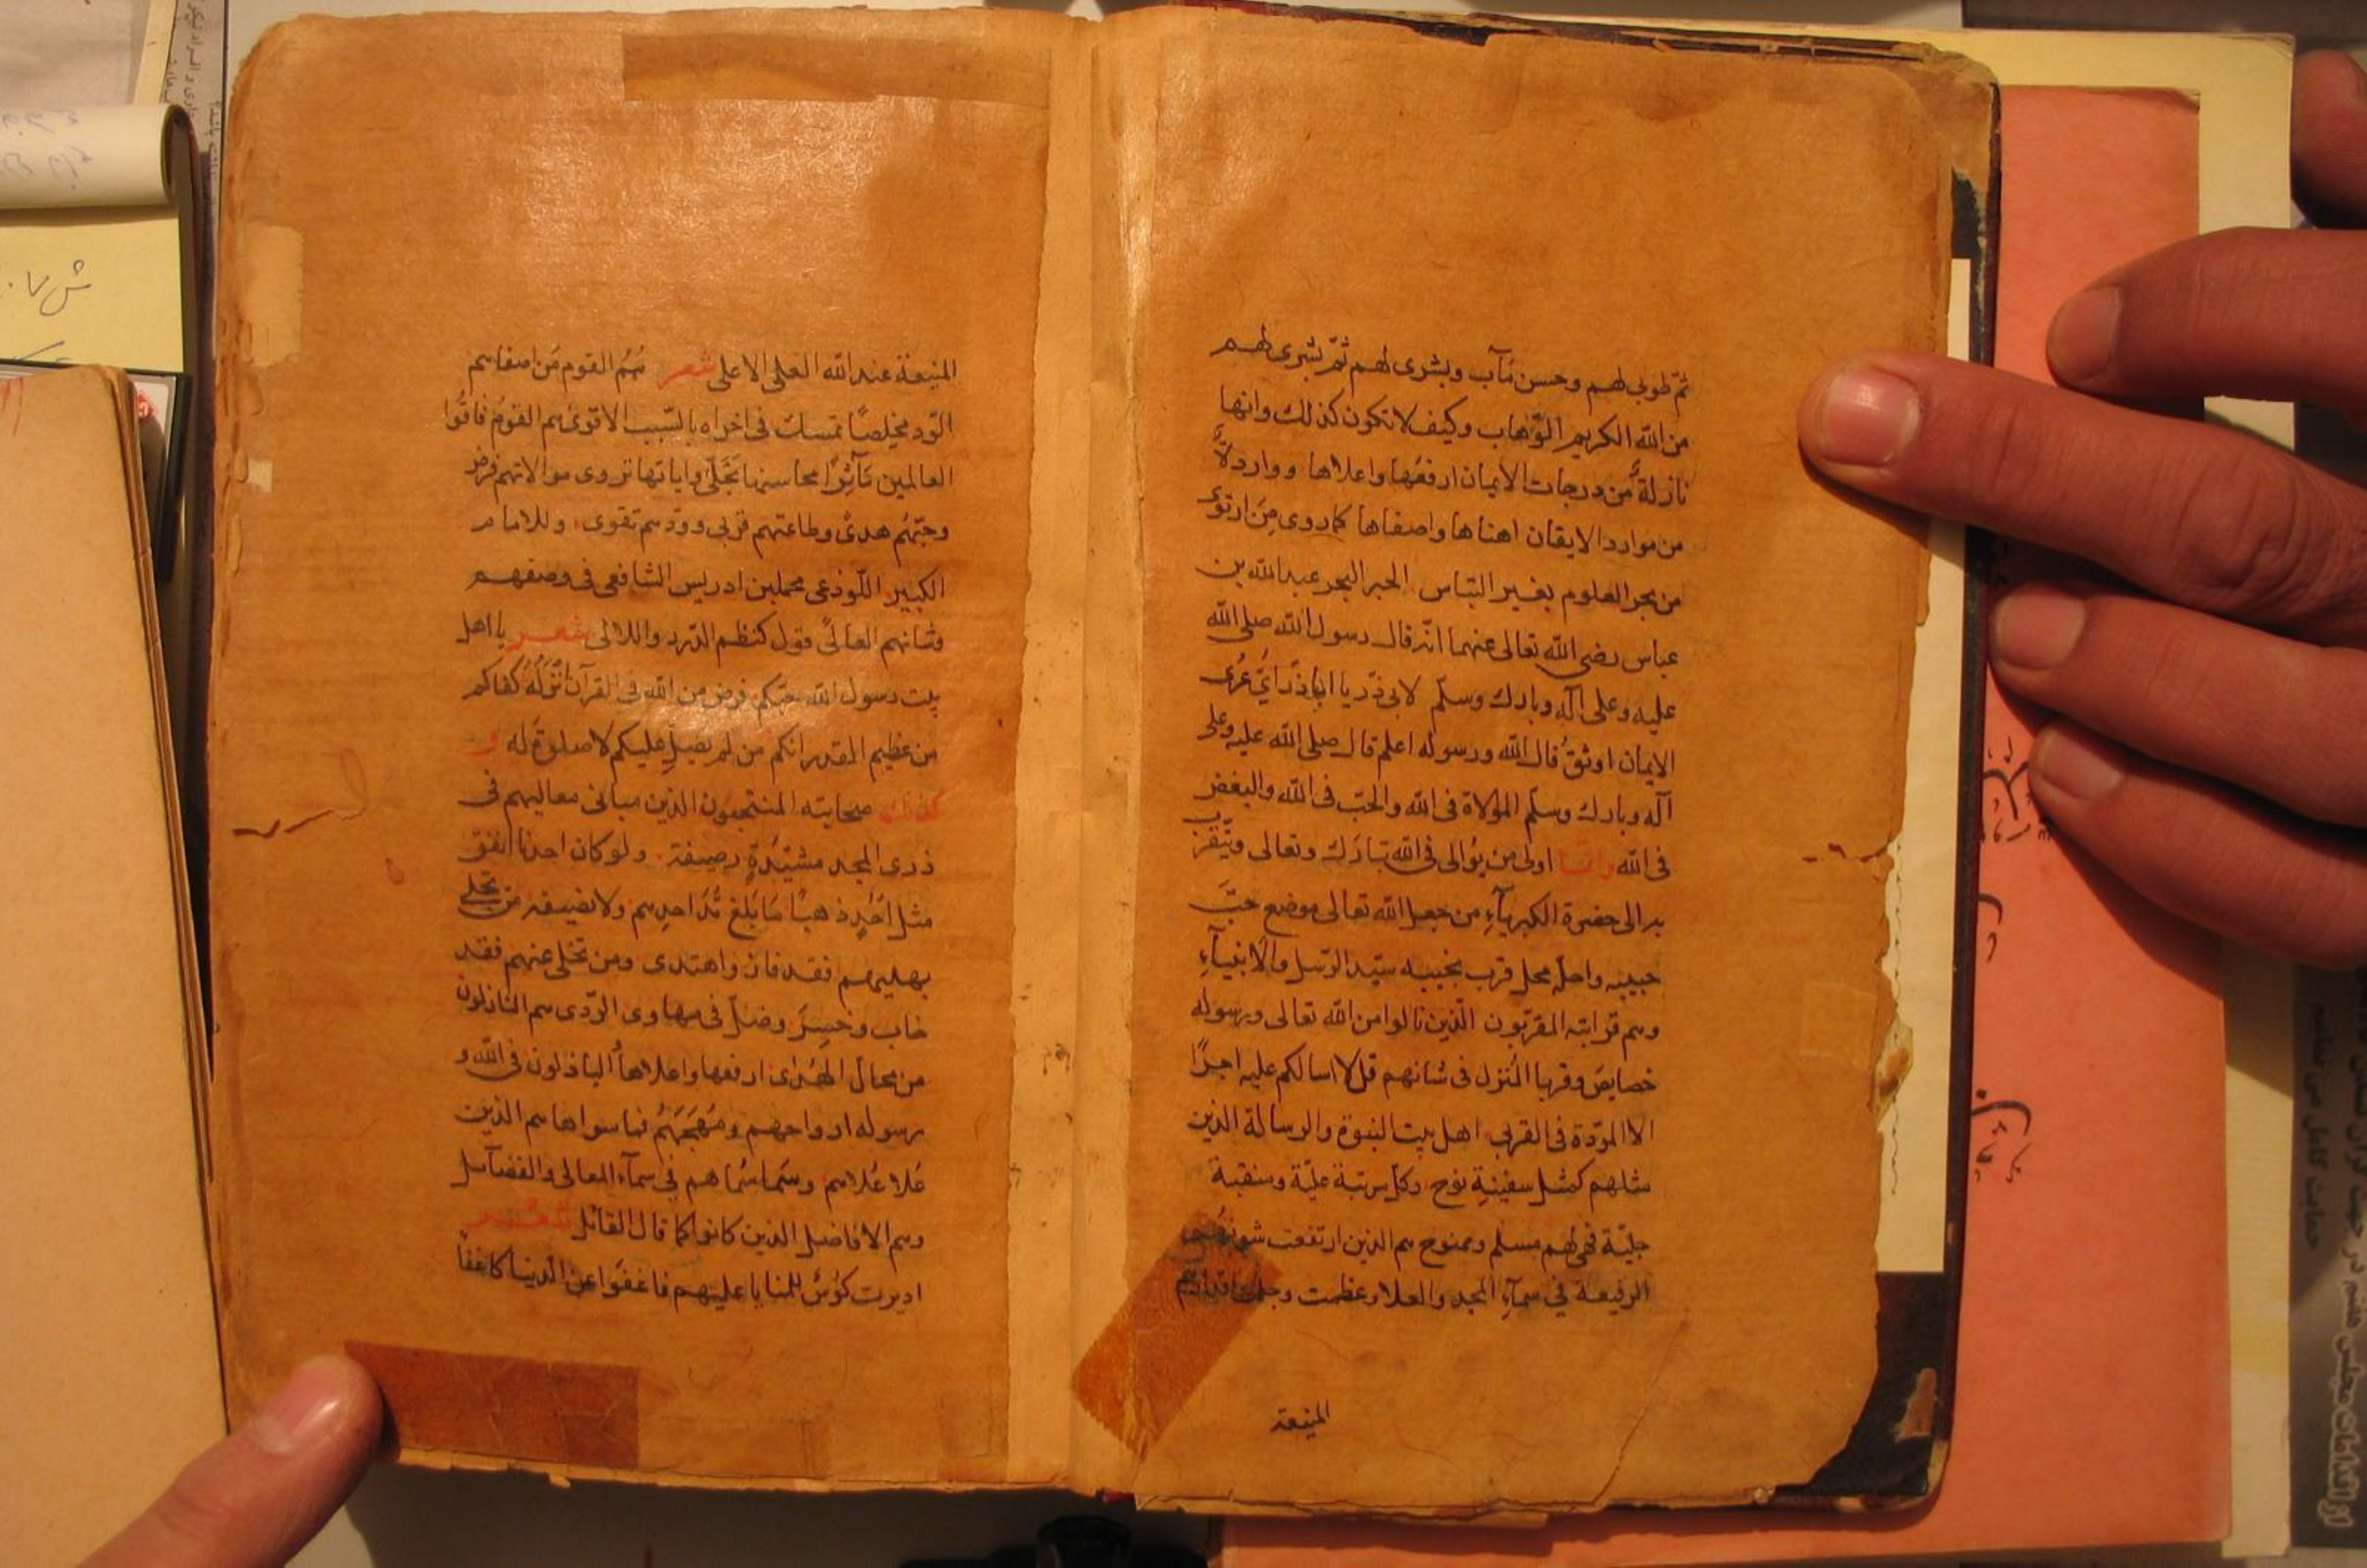 ثمّ طوبى لهم وحسن مآب وبشرى لهم ثمّ بشرى لهم
من الله الكريم الوّهاب وكيف لا تكون كذلك وانها
نازلة من درجات الايمان ارفعها واعلاها وواردة
من موارد الايقان اهناها واصفاها كما روى من ارتوى
من بحر العلوم بغير التباس الحبر البحر عبد الله بن
عباس رضى الله تعالى عنهما انّه قال رسول الله صلى الله
عليه وعلى آله وبارك وسلّم لابى ذرّ يا اباذرّ اىّ عرى
الايمان اوثق قال الله ورسوله اعلم قال صلى الله عليه وعلى
آله وبارك وسلّم الموالاة فى الله والحبّ فى الله والبغض
فى الله وانّما اولى من يوالى فى الله تبارك وتعالى ويتقرّب
به الى حضرة الكبرياء من جعل الله تعالى موضع حبّ
حبيبه واحلّه محل قرب نجيبه سيّد الرّسل والانبيآء
وهم قرابته المقرّبون الّذين نالوا من الله تعالى وبرسوله
خصايص وقربا المنزل فى شانهم قل لا اسالكم عليه اجرًا
الا المودّة فى القربى اهل بيت النبوّة والرسالة الذين
مثلهم كمثل سفينة نوح وكل مرتبة عليّة ومنقبة
جليّة فهى لهم مسلم وممنوح هم الذين ارتفعت شونهم
الرفيعة في سمآء المجد والعلا وعظمت
المنيعة
المنيعة عند الله العلى الاعلى شعر هم القوم من اصفاهم
الودّ مخلصًا تمسك فى اخراه بالسّبب الاقوى هم القوم فاقوا
العالمين مآثرًا محاسنها تجلّى واياتها تروى موالاتهم فرض
وحبّهم هدىً وطاعتهم قربى وودّهم تقوى وللامام
الكبير اللّوذعى محمد بن ادريس الشافعى فى وصفهم
وشانهم العالى قول كنظم الدّرر واللالى شعر يا اهل
بيت رسول الله حبّكم فرض من الله فى القرآن انزله كفاكم
من عظيم القدر انكم من لم يصل عليكم لا صلوة له و
كذلك صحابته المنتجبون الذين مبانى معاليهم فى
ذرى المجد مشيّدة رصيفة ولو كان احدنا انفق
مثل احد ذهبًا ما بلغ مدّ احدهم ولا نصيفه من تحلى
بهديهم فقد فاز واهتدى ومن تخلى عنهم فقد
خاب وخسر وضلّ فى مهاوى الرّدى هم النازلون
من محالّ الهدى ارفعها واعلاها الباذلون فى الله و
رسوله ارواحهم ومهجهم فما سواها هم الذين
علا علاهم وسما سماهم في سمآء المعالى والفضآئل
وهم الافاضل الذين كانوا كما قال القائل شعر
اديرت كؤس للمنايا عليهم فاغفوا عن الدنيا كاغفا